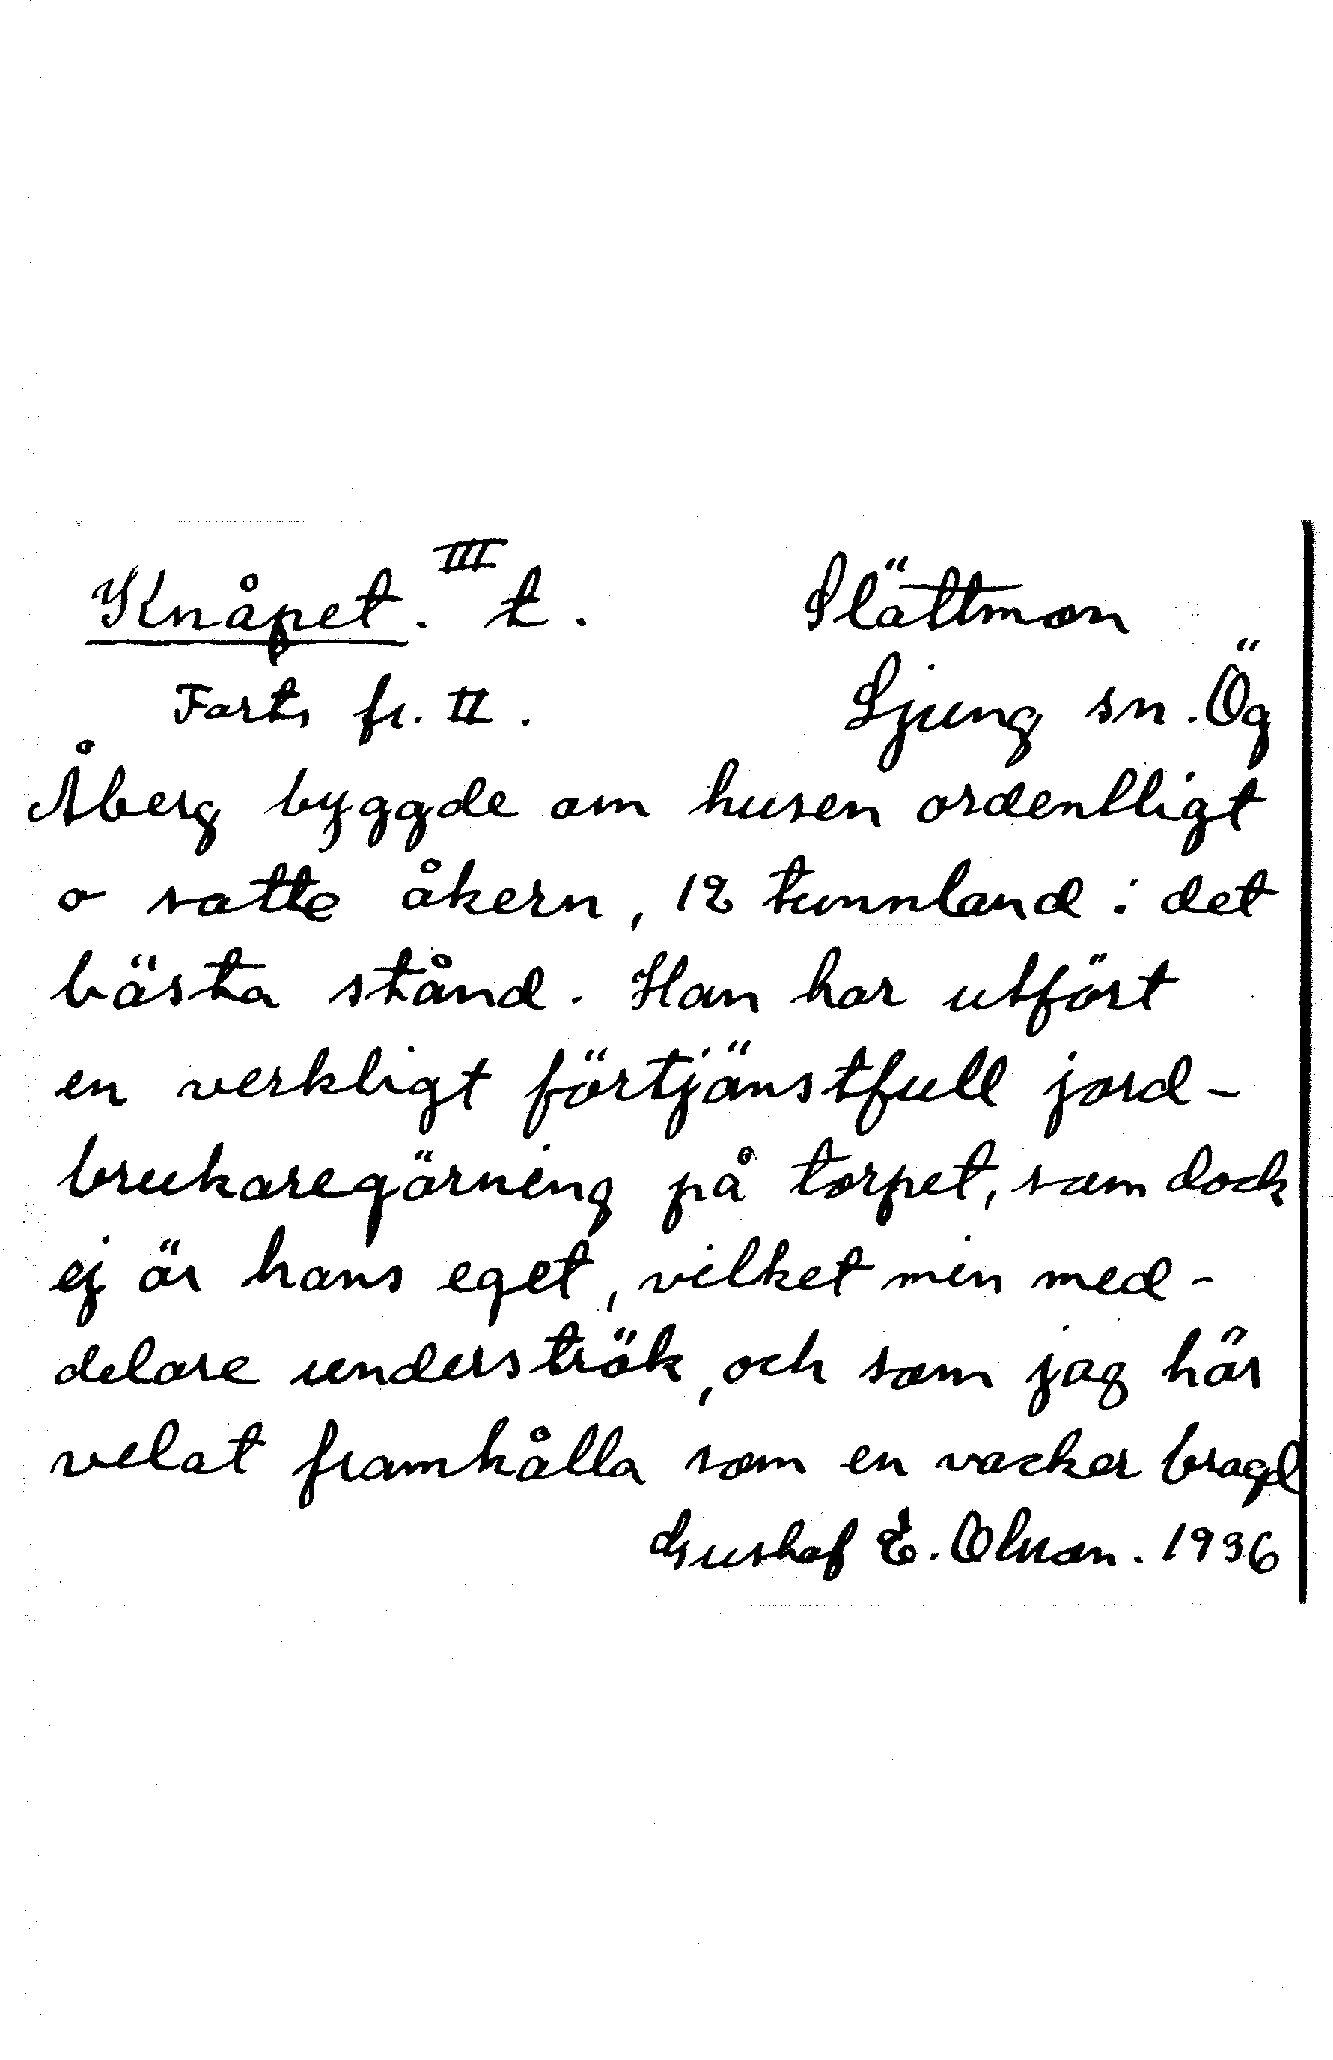 Knåpet. III t. Slättmon
Forts fr. II. Ljung sn. Ög
Åberg byggde om husen ordentligt
o satte åkern, 12 tunnland i det
bästa stånd. Han har utfört
en verkligt förtjänstfull jord-
brukaregärning på torpet, som dock
ej är hans eget, vilket min med-
delare underströk, och som jag här
velat framhålla som en vacker bragd
Gustaf E. Olsson. 1936